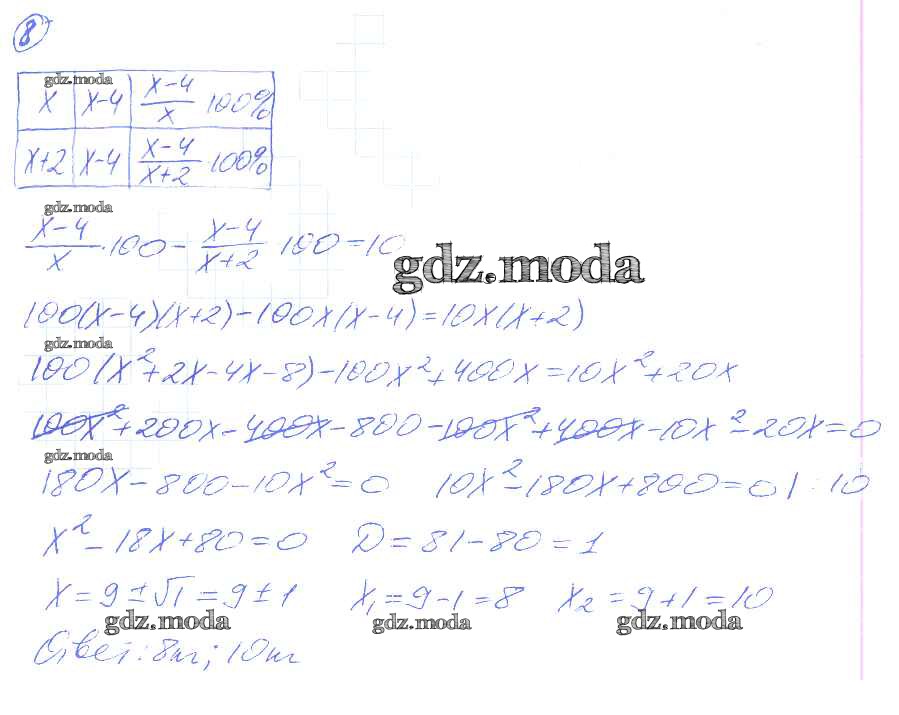 8
gdz.moda
x | x-4 | (x-4)/x 100%
x+2 | x-4 | (x-4)/(x+2) 100%
gdz.moda
(x-4)/x · 100 - (x-4)/(x+2) 100 = 10
gdz.moda
100(x-4)(x+2)-100x(x-4)=10x(x+2)
gdz.moda
100(x²+2x-4x-8)-100x²+400x=10x²+20x
100x²+200x-400x-800-100x²+400x-10x²-20x=0
gdz.moda
180x-800-10x²=0 10x²-180x+800=0 | : 10
x²-18x+80=0 D=81-80=1
x=9±√1=9±1 x₁=9-1=8 x₂=9+1=10
gdz.moda gdz.moda gdz.moda
Ответ: 8т; 10т